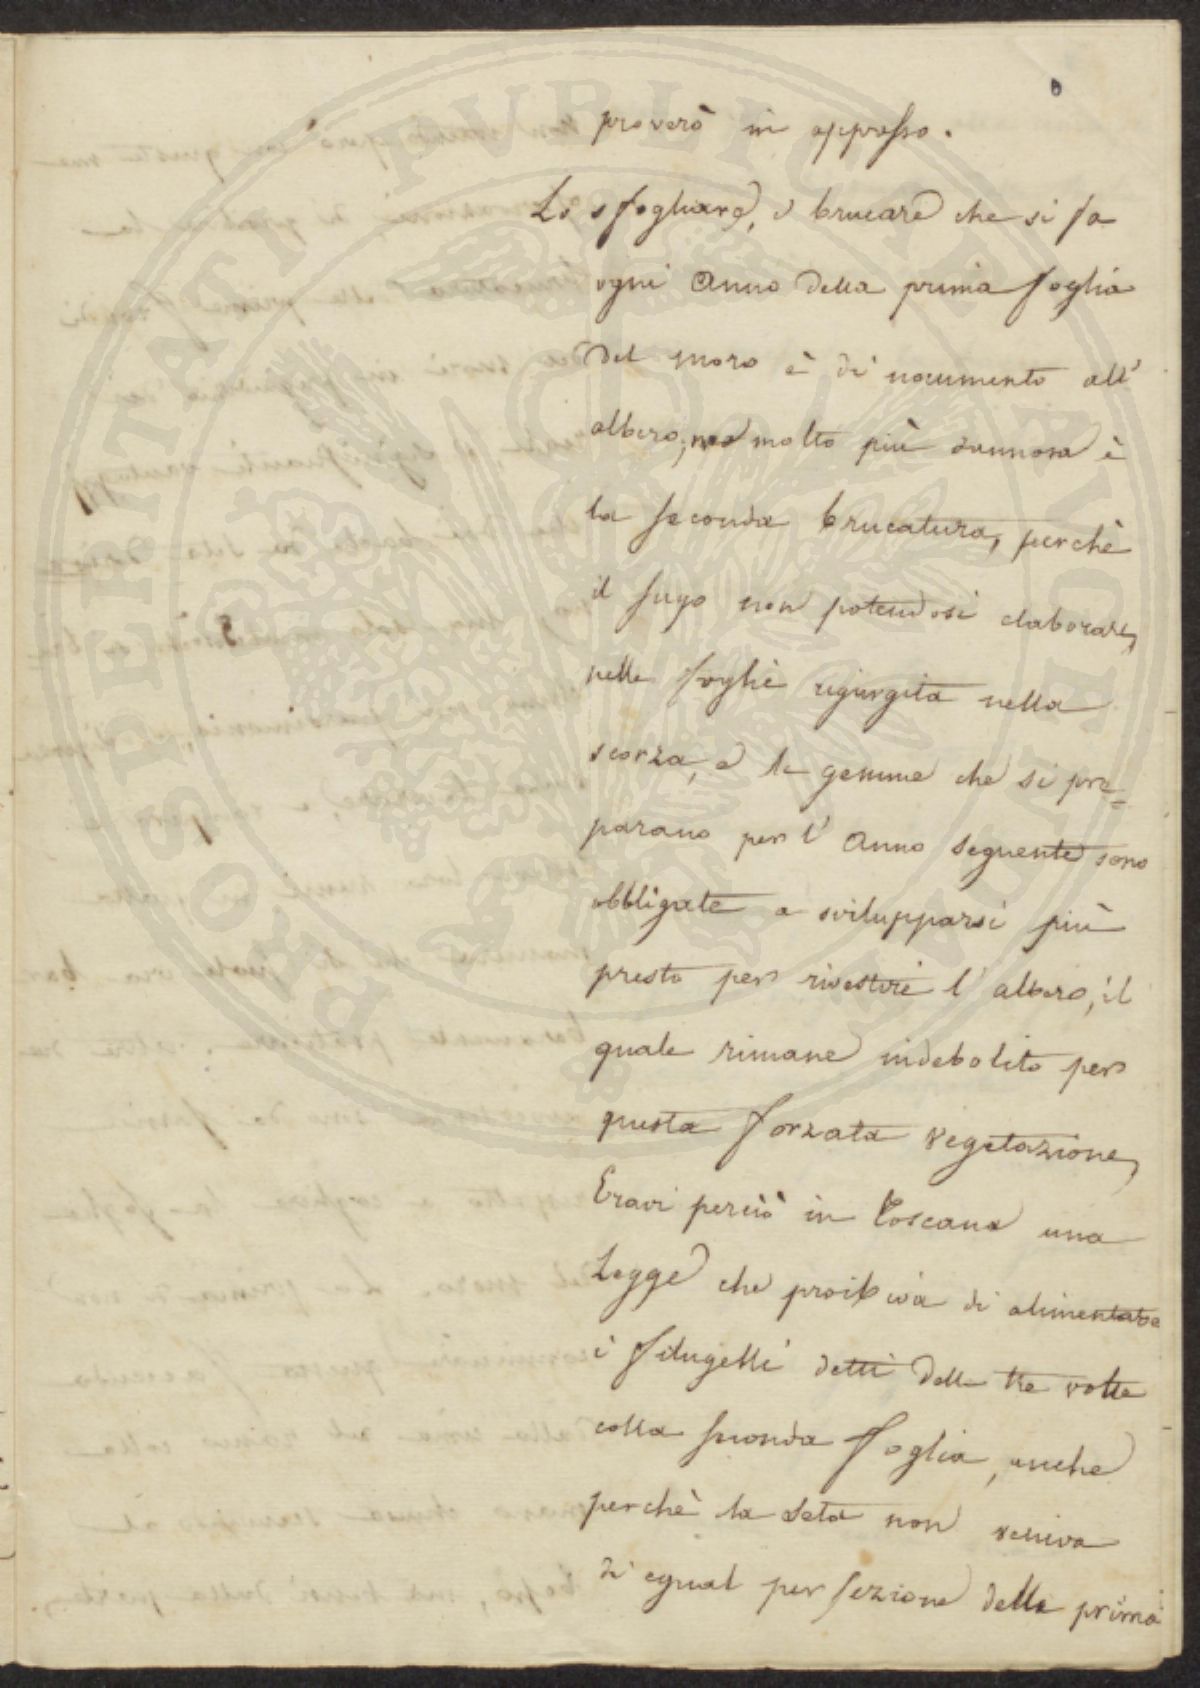 proverò in appresso.
Lo sfogliare, o brucare che si fa
ogni Anno della prima foglia
del moro è di nocumento all'
albero, ma molto più dannosa è
la seconda brucatura, perchè
il sugo non potendosi elaborare,
nelle foglie rigurgita nella
scorza, e le gemme che si pre=
parano per l'Anno seguente sono
obbligate a svilupparsi più
presto per rivestire l'albero, il
quale rimane indebolito per
questa forzata vegetazione,
Eravi perciò in Toscana una
Legge che proibiva di alimentare
i filugelli detti delle tre volte
colla seconda foglia, anche
perchè la Seta non veniva
di egual perfezione della prima
PROSPERITATI PVBLICAE AVGENDAE